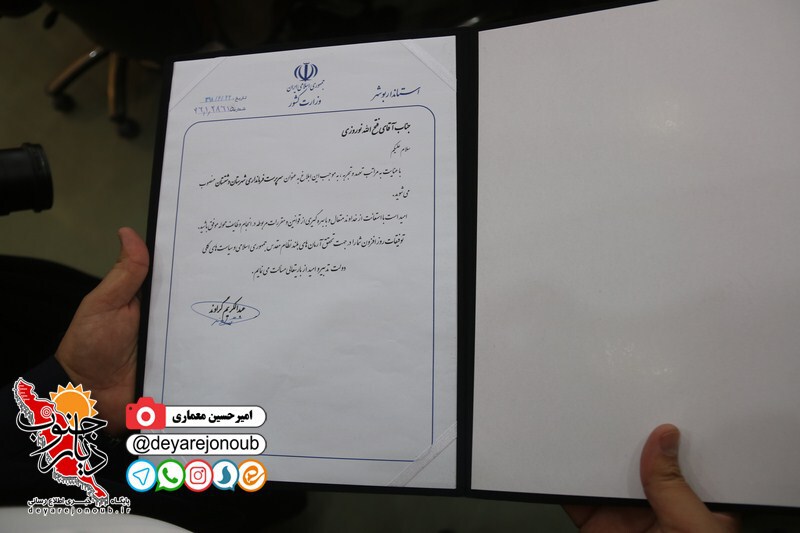 جمهوری اسلامی ایران
وزارت کشور
استاندار بوشهر
جناب آقای فتح الله نوروزی
سلام علیکم
با عنایت به مراتب تعهد و تجربه، به موجب این ابلاغ به عنوان سرپرست فرمانداری شهرستان دشتستان منصوب
می شوید.
امید است با استعانت از خداوند متعال و با بهره گیری از قوانین و مقررات مربوطه در انجام وظایف محوله موفق باشید.
توفیقات روزافزون شما را در جهت تحقق آرمان های بلند نظام مقدس جمهوری اسلامی و سیاست های کلی
دولت تدبیر و امید از باریتعالی مسألت می نمایم.
عبدالکریم گراوند
دیار جنوب
پایگاه خبری اطلاع رسانی
deyarejonoub.ir
امیرحسین معماری
@deyarejonoub